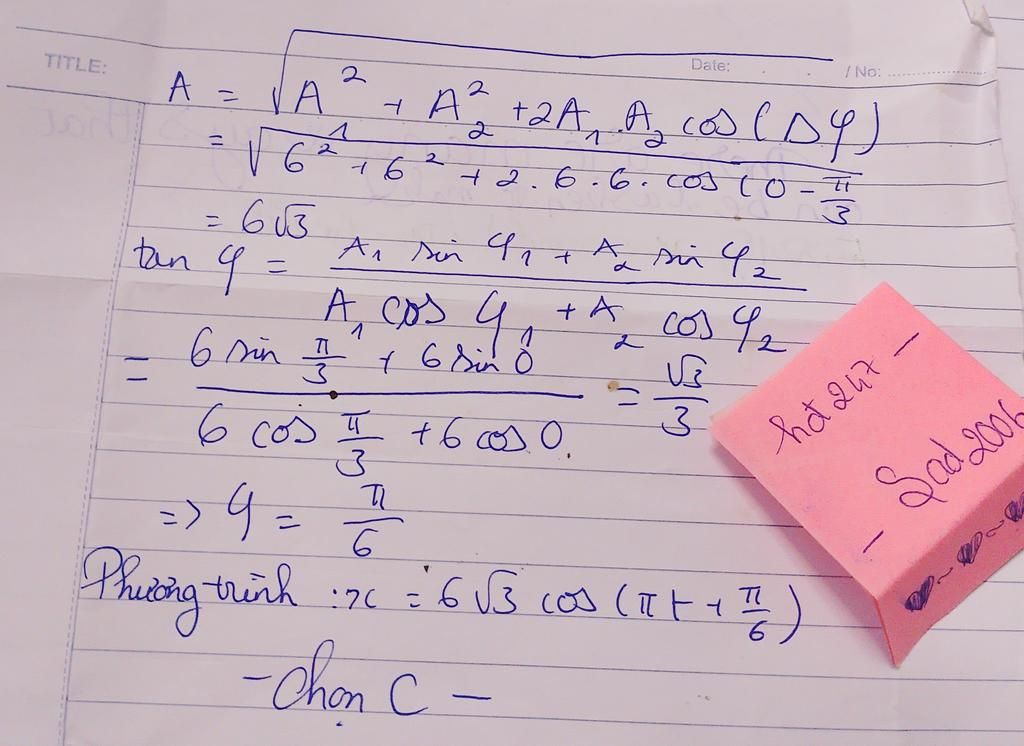 TITLE:
Date: . . / No: ....................
A = √A₁² + A₂² + 2A₁.A₂ cos(Δφ)
= √6² + 6² + 2.6.6.cos(0 - π/3
= 6√3
tan φ = (A₁ sin φ₁ + A₂ sin φ₂)/(A₁ cos φ₁ + A₂ cos φ₂)
= (6 sin π/3 + 6 sin 0)/(6 cos π/3 + 6 cos 0.) = √3/3
=> φ = π/6
Phương trình : x = 6√3 cos(πt + π/6)
- Chọn C -
hot 247 -
- Sad2006